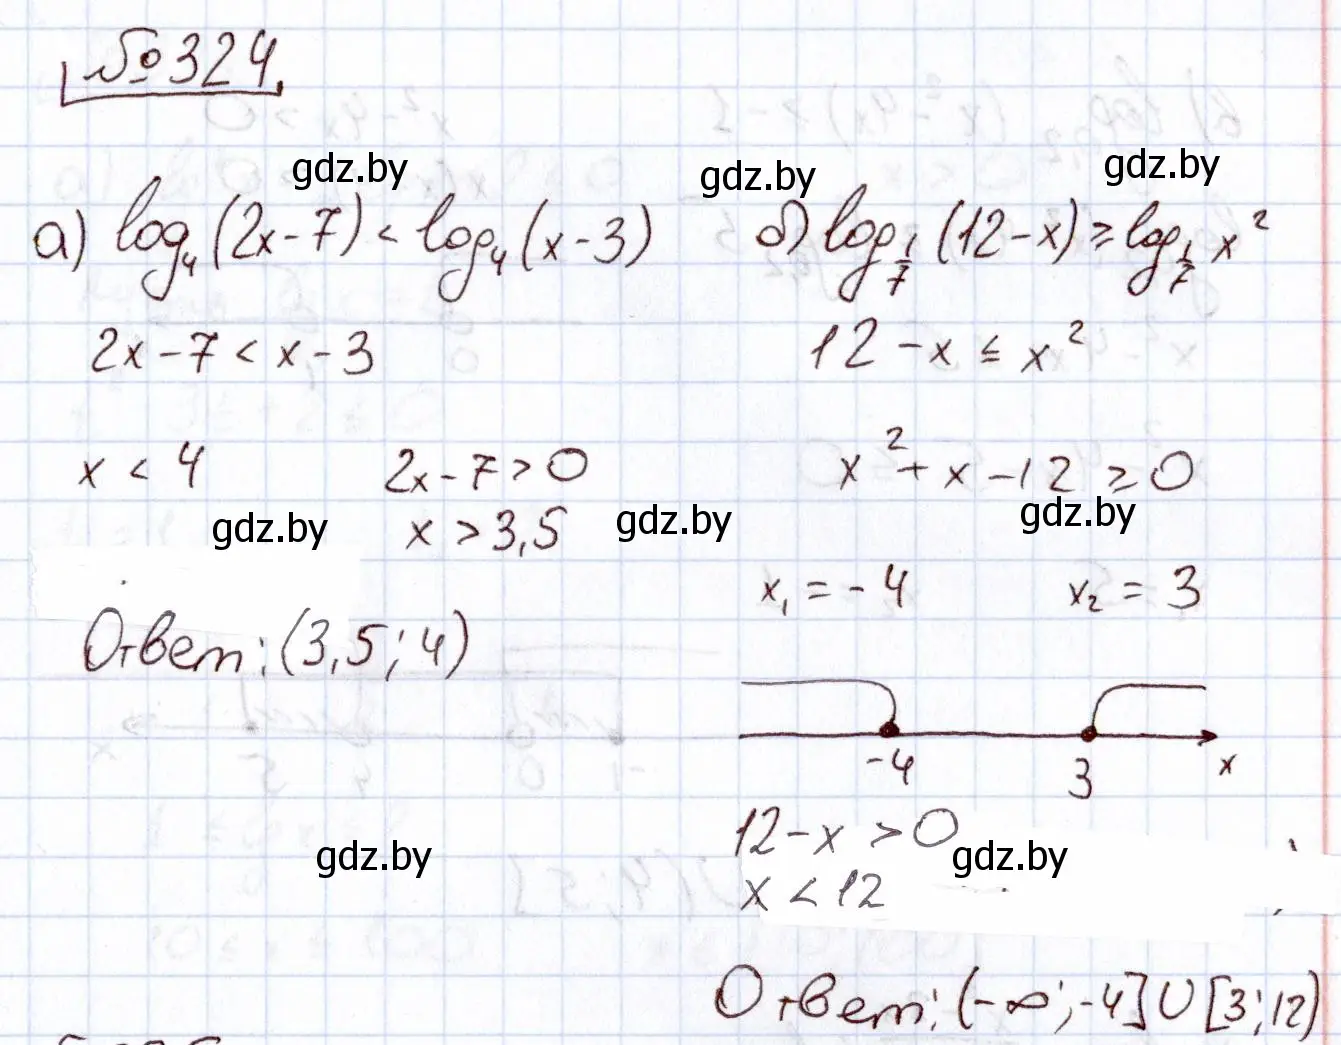 №324.
gdz.by
gdz.by
gdz.by
а) log₄(2x-7) < log₄(x-3)
2x-7 < x-3
x < 4
2x-7 > 0
x > 3,5
gdz.by
gdz.by
Ответ: (3,5; 4)
gdz.by
б) log_{1/7}(12-x) ≥ log_{1/7} x²
12-x ≤ x²
x²+x-12 ≥ 0
gdz.by
x₁ = -4
x₂ = 3
-4
3
x
12-x > 0
gdz.by
x < 12
Ответ: (-∞; -4] ∪ [3; 12)